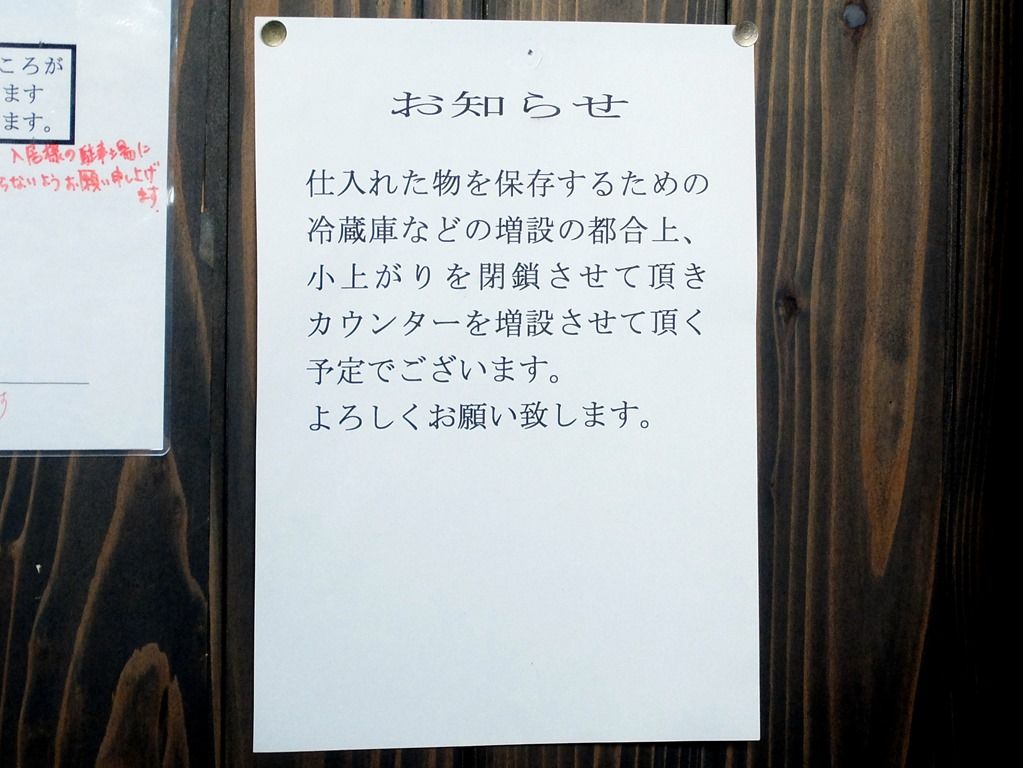 ころが
ます
ます。
入居様の駐車場に
らないようお願い申し上げ
ます
お知らせ
仕入れた物を保存するための
冷蔵庫などの増設の都合上、
小上がりを閉鎖させて頂き
カウンターを増設させて頂く
予定でございます。
よろしくお願い致します。